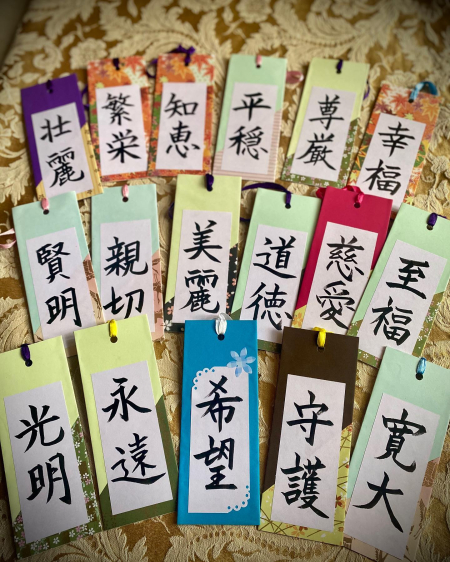 壮麗
繁栄
知恵
平穏
尊厳
幸福
賢明
親切
美麗
道徳
慈愛
至福
光明
永遠
希望
守護
寛大